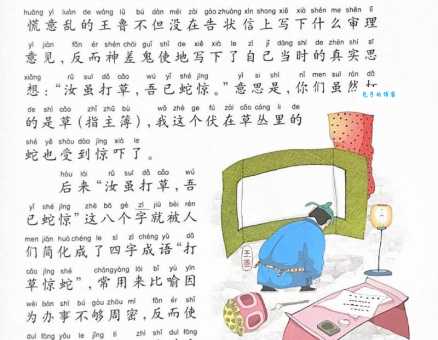 huāng yì luàn de wáng lǔ bú dàn méi zài gào zhuàng xìn shang xiě xià shén me shěn lǐ
慌意乱的王鲁不但没在告状信上写下什么审理
yì jiàn fǎn ér shén chāi guǐ shǐ de xiě xià le zì jǐ dāng shí de zhēn shí sī
意见，反而神差鬼使地写下了自己当时的真实思
xiǎng rǔ suī dǎ cǎo wú yǐ shé jīng yì si shì nǐ men suī rán dǎ
想：“汝虽打草，吾已蛇惊。”意思是，你们虽然打
de shì cǎo zhǐ zhǔ bù wǒ zhè ge fú zài cǎo cóng li de
的是草（指主薄），我这个伏在草丛里的
shé yě shòu dào jīng xià le
蛇也受到惊吓了。
hòu lái rǔ suī dǎ cǎo wú
后来“汝虽打草，吾
yǐ shé jīng zhè bā gè zì jiù bèi rén
已蛇惊”这八个字就被人
men jiǎn huà chéng le sì zì chéng yǔ dǎ
们简化成了四字成语“打
cǎo jīng shé cháng yòng lái bǐ yù yīn
草惊蛇”，常用来比喻因
wéi bàn shì bú gòu zhōu mì fǎn ér shǐ
为办事不够周密，反而使
王鲁